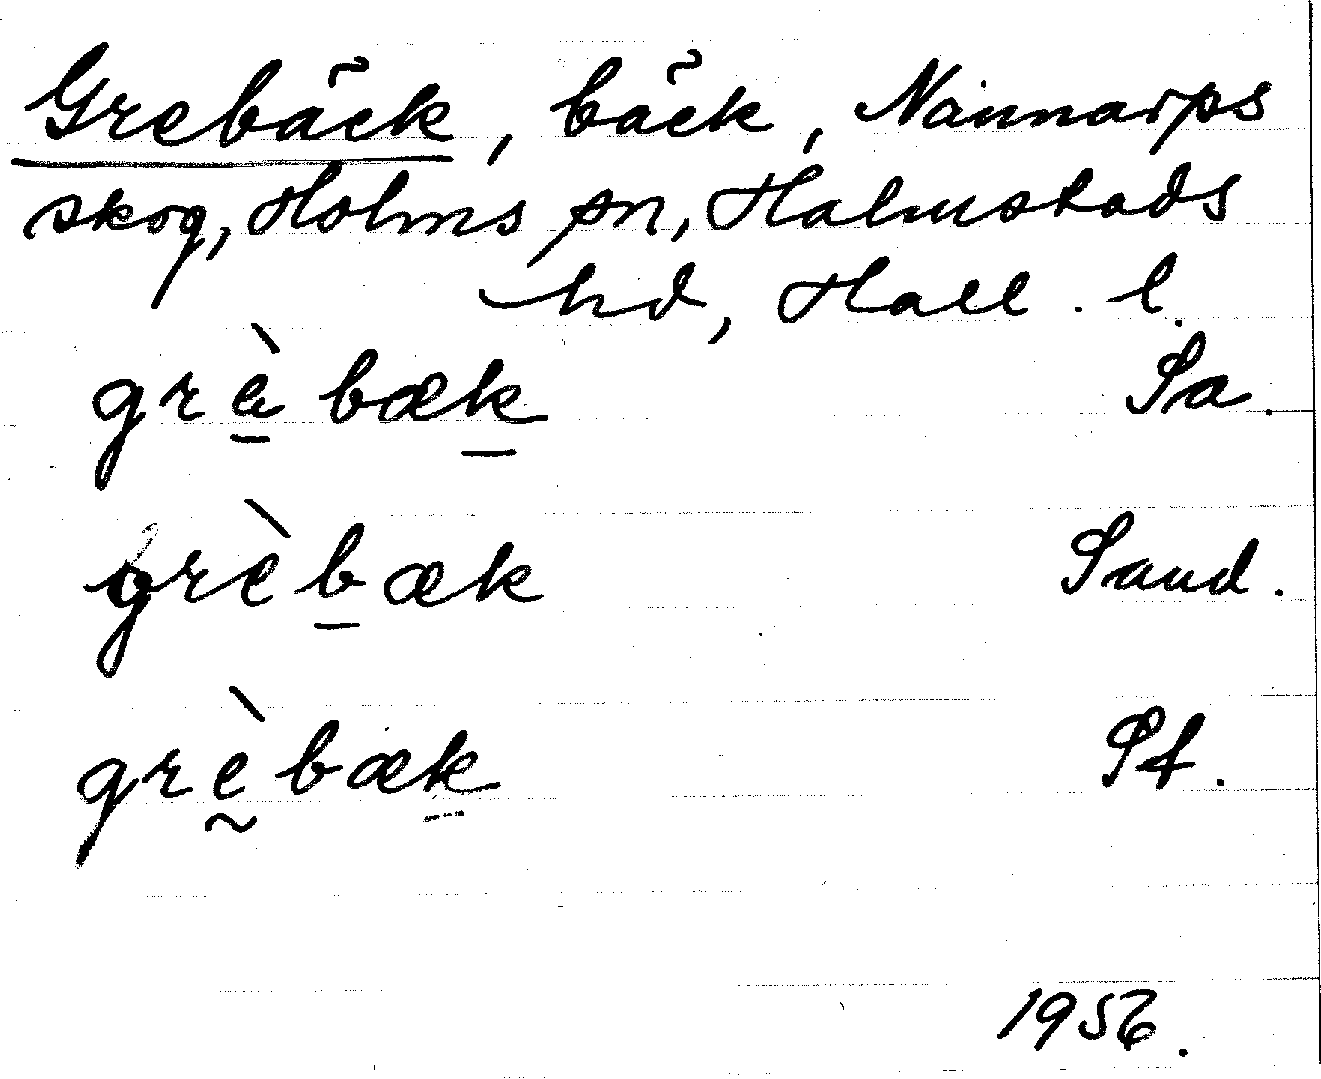 Grebäck, bäck, Nannarps
skog, Holms sn, Halmstads
hd, Hall. l.
grèbæk Sa.
grèbæk Sand.
grèbæk Sf.
1956.